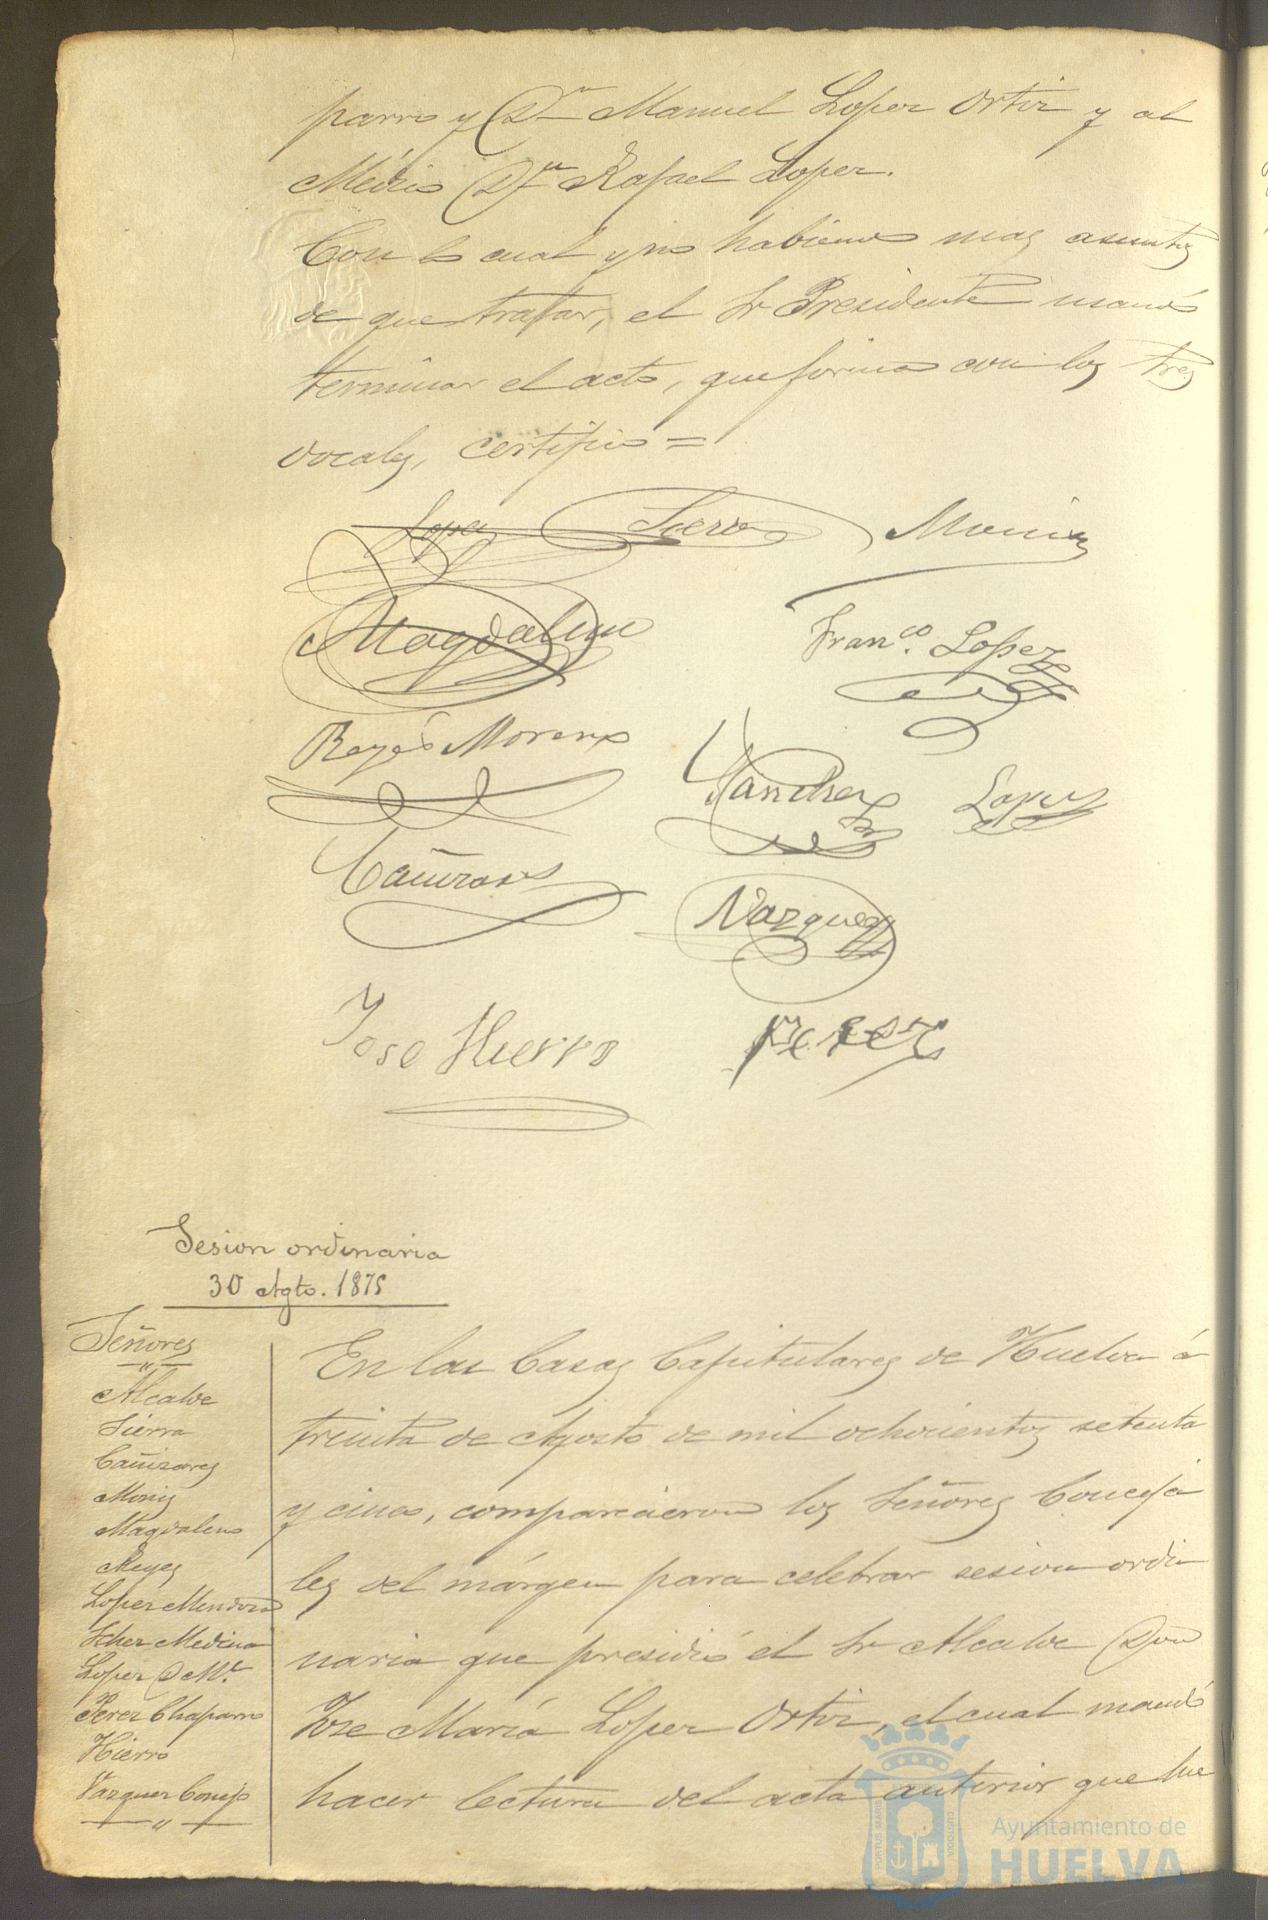 parro y Dn Manuel Lopez Ortiz y al
Médico Dn Rafael Lopez.
Con lo cual y no habiendo mas asuntos
de que tratar, el Sr Presidente mandó
terminar el acto, que firma con los tres
vocales, certifico =
Lopez Sierra
Magdaleno Franco. Lopez
Reyes Moreno
Sanchez Lopez
Cañizares
Vazquez
Jose Hierro Perez
Sesion ordinaria
30 Agto. 1875
Señores
"
Alcalde
Sierra
Cañizares
Magdaleno
Reyes
Lopez Mendoza
Schez Medina
Lopez D Ml
Perez Chaparro
Hierro
Vazquez Conejo
"
En las Casas Capitulares de Huelva á
treinta de Agosto de mil ochocientos setenta
y cinco, comparecieron los Señores Conceja
les del márgen para celebrar sesion ordi
naria que presidió el Sr Alcalde Don
Jose María Lopez Ortiz, el cual mandó
hacer lectura del acta anterior que fue
PORTUS MARIS
CUSTODIA
Ayuntamiento de
HUELVA